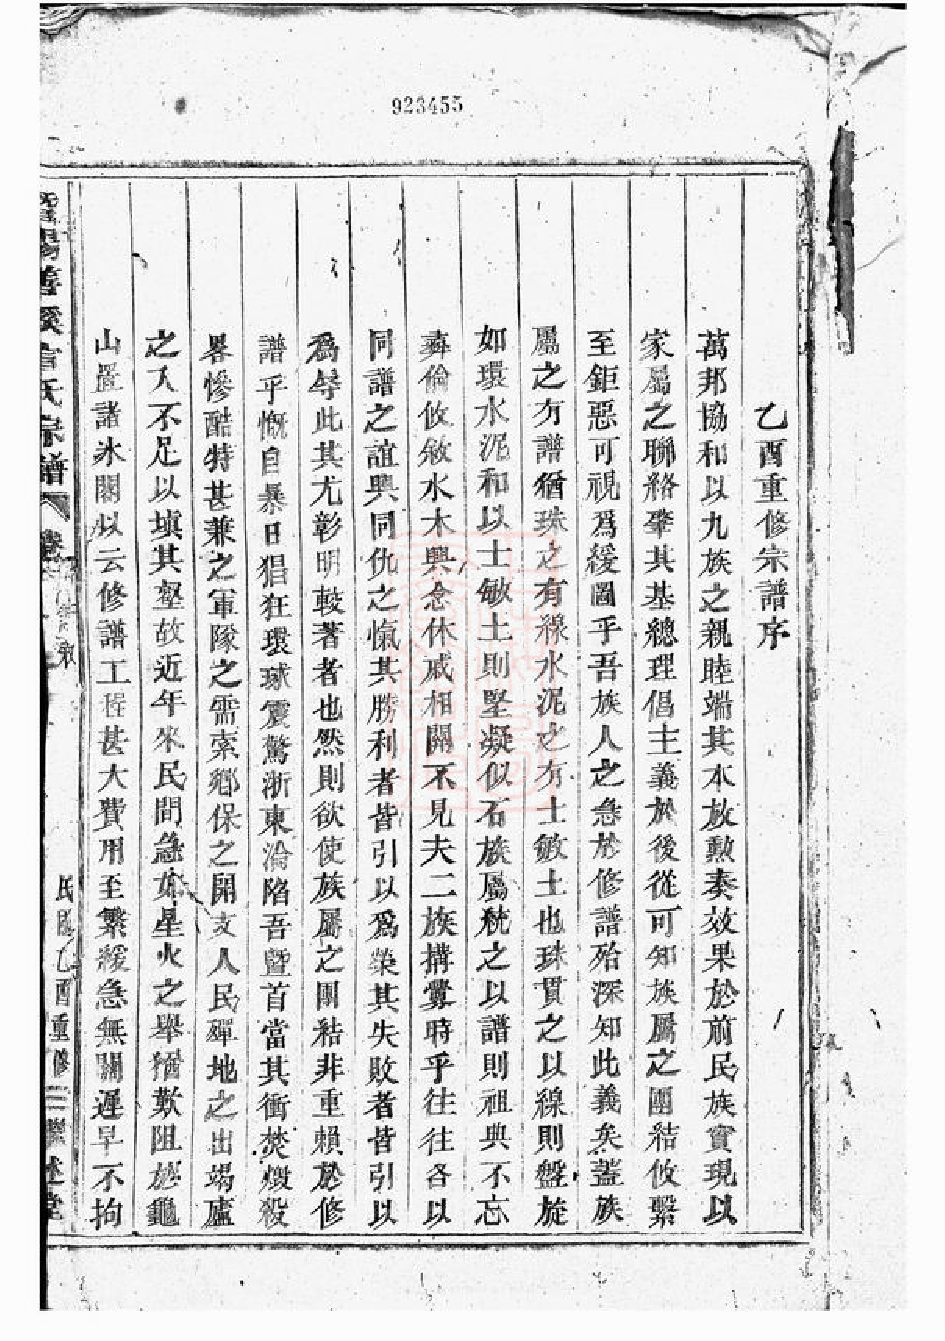 923455
乙酉重修宗譜序
萬邦協和以九族之親睦端其本放勲奏效果於前民族實現以
家屬之聯絡肇其基總理倡主義於後從可知族屬之團結攸繫
至鉅惡可視爲緩圖乎吾族人之急於修譜殆深知此義矣蓋族
屬之有譜猶珠之有線水泥之有士敏土也珠貫之以線則盤旋
如環水泥和以士敏土則堅凝似石族屬統之以譜則祖典不忘
彝倫攸敘水木興念休戚相關不見夫二族搆釁時乎往往各以
同譜之誼興同仇之愾其勝利者皆引以爲榮其失敗者皆引以
爲辱此其尤彰明較著者也然則欲使族屬之團結非重賴於修
譜乎慨自暴日猖狂環球震驚浙東淪陷吾暨首當其衝焚燬殺
畧慘酷特甚兼之軍隊之需索鄉保之開支人民殫地之出竭廬
之入不足以填其壑故近年來民間急如星火之舉猶歎阻於龜
山置諸冰閣似云修譜工程甚大費用至繁緩急無關遲早不拘
暨陽善溪官氏宗譜 卷
民國乙酉重修 述堂